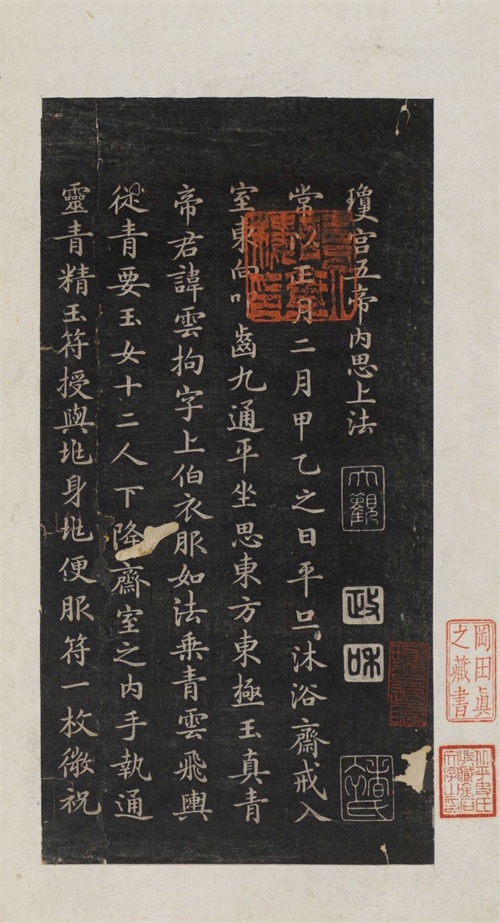 瓊宮五帝內思上法
常以正月二月甲乙之日平旦沐浴齋戒入
室東向叩齒九通平坐思東方東極玉真青
帝君諱雲拘字上伯衣服如法乘青雲飛輿
從青要玉女十二人下降齋室之內手執通
靈青精玉符授與兆身兆便服符一枚微祝
大觀
政
和
岡田真
之藏書